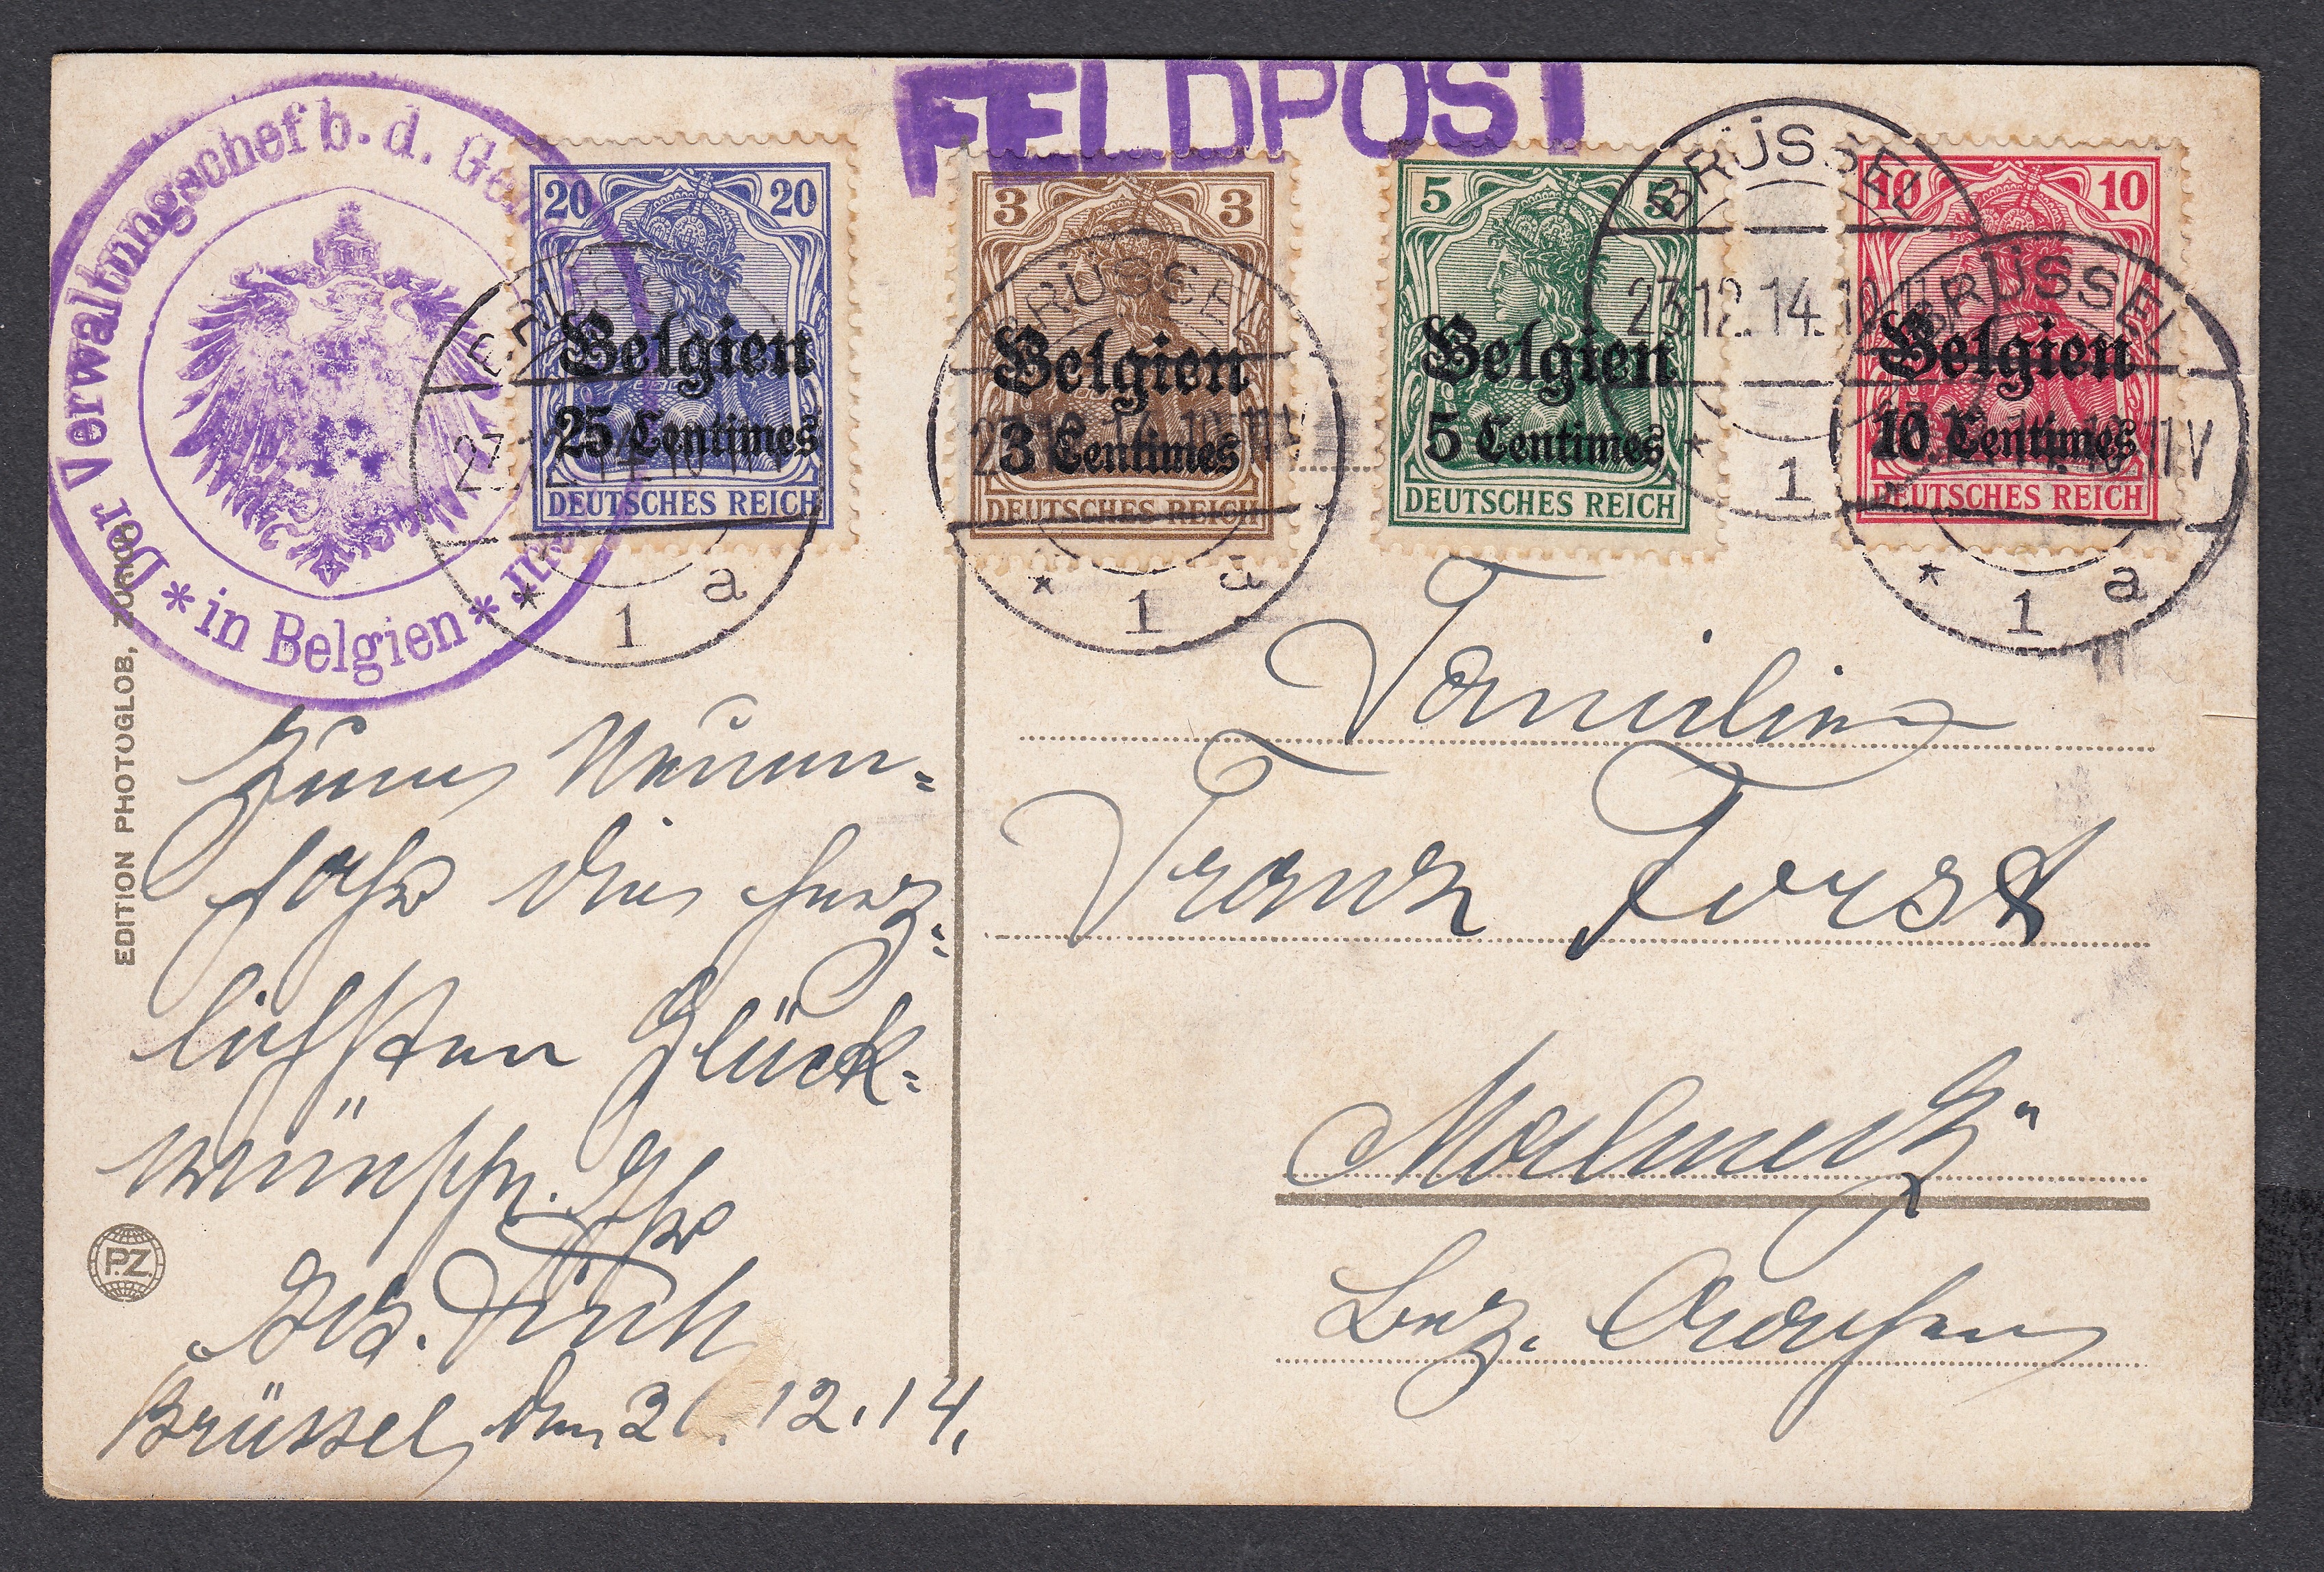 FELDPOST
Der Verwaltungschef b. d. Gen
* in Belgien *
20 20
Belgien
25 Centimes
DEUTSCHES REICH
3 3
Belgien
3 Centimes
DEUTSCHES REICH
5 5
Belgien
5 Centimes
DEUTSCHES REICH
10 10
Belgien
10 Centimes
DEUTSCHES REICH
BRÜSSEL
* 1 a
BRÜSSEL
* 1 a
BRÜSSEL
23.12.14.10
* 1
BRÜSSEL
* 1 a
EDITION PHOTOGLOB, ZÜRICH
P.Z.
Zum Neuen-
Jahr die herz-
lichsten Glück-
wünsche. Ihr
Brüssel, den 12.14.
Familie
Franz Forst
Malmedy
Bez. Aachen